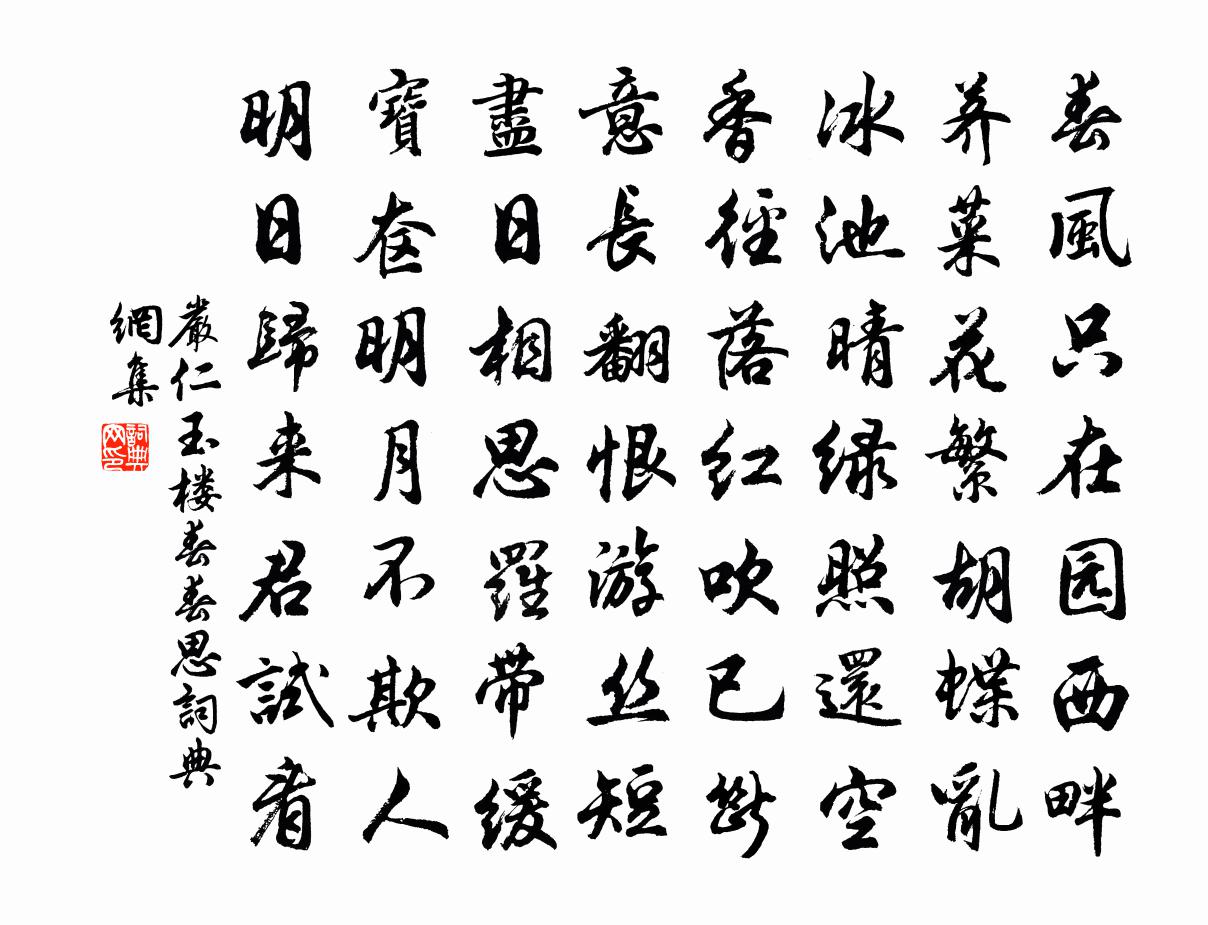 春風只在园西畔
荠菜花繁胡蝶亂
冰池晴绿照還空
香徑落红吹已斷
意長翻恨游丝短
盡日相思羅带缓
寶奁明月不欺人
明日歸来君試看
嚴仁玉楼春春思詞典
網集
詞典
网印